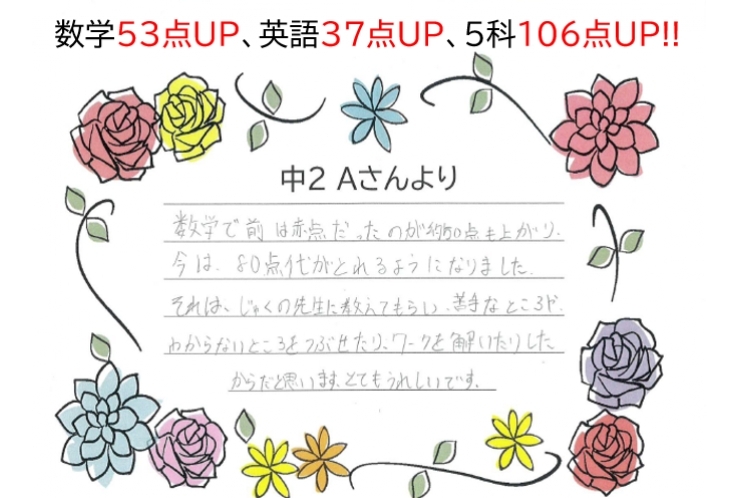 数学53点UP、英語37点UP、5科106点UP!!
中2 Aさんより
数学で前は赤点だったのが約50点も上がり、
今は、80点代がとれるようになりました。
それは、じゅくの先生に教えてもらい、苦手なところや
わからないところをつぶせたり、ワークを解いたりした
からだと思います。とてもうれしいです。